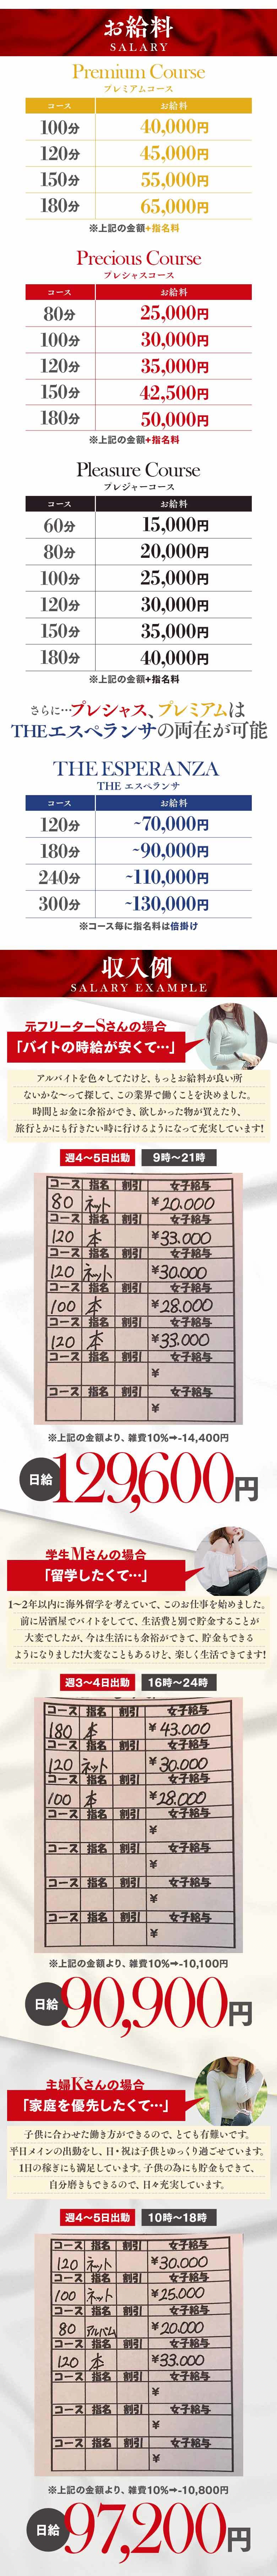 お給料
SALARY
Premium Course
プレミアムコース
コース お給料
100分 40,000円
120分 45,000円
150分 55,000円
180分 65,000円
※上記の金額+指名料
Precious Course
プレシャスコース
コース お給料
80分 25,000円
100分 30,000円
120分 35,000円
150分 42,500円
180分 50,000円
※上記の金額+指名料
Pleasure Course
プレジャーコース
コース お給料
60分 15,000円
80分 20,000円
100分 25,000円
120分 30,000円
150分 35,000円
180分 40,000円
※上記の金額+指名料
さらに…プレシャス、プレミアムは
THEエスペランサの両在が可能
THE ESPERANZA
THE エスペランサ
コース お給料
120分 ~70,000円
180分 ~90,000円
240分 ~110,000円
300分 ~130,000円
※コース毎に指名料は倍掛け
収入例
SALARY EXAMPLE
元フリーターSさんの場合
「バイトの時給が安くて…」
アルバイトを色々してたけど、もっとお給料が良い所
ないかな〜って探して、この業界で働くことを決めました。
時間とお金に余裕ができ、欲しかった物が買えたり、
旅行とかにも行きたい時に行けるようになって充実しています!
週4〜5日出勤 9時〜21時
コース 指名 割引 女子給与
80 ネット ¥20.000
コース 指名 割引 女子給与
120 本 ¥33.000
コース 指名 割引 女子給与
120 ネット ¥30.000
コース 指名 割引 女子給与
100 本 ¥28.000
コース 指名 割引 女子給与
120 本 ¥33.000
コース 指名 割引 女子給与
¥
コース 指名 割引 女子給与
¥
※上記の金額より、雑費10%➡-14,400円
日給 129,600円
学生Mさんの場合
「留学したくて…」
1〜2年以内に海外留学を考えていて、このお仕事を始めました。
前に居酒屋でバイトをしてて、生活費と別で貯金することが
大変でしたが、今は生活にも余裕ができて、貯金もできる
ようになりました!大変なこともあるけど、楽しく生活できてます!
週3〜4日出勤 16時〜24時
コース 指名 割引 女子給与
180 本 ¥43.000
コース 指名 割引 女子給与
120 ネット ¥30.000
コース 指名 割引 女子給与
100 本 ¥28.000
コース 指名 割引 女子給与
¥
コース 指名 割引 女子給与
¥
コース 指名 割引 女子給与
¥
コース 指名 割引 女子給与
¥
※上記の金額より、雑費10%➡-10,100円
日給 90,900円
主婦Kさんの場合
「家庭を優先したくて…」
子供に合わせた働き方ができるので、とても有難いです。
平日メインの出勤をし、日・祝は子供とゆっくり過ごせています。
1日の稼ぎにも満足しています。子供の為にも貯金もできて、
自分磨きもできるので、日々充実しています。
週4〜5日出勤 10時〜18時
コース 指名 割引 女子給与
120 ネット ¥30.000
コース 指名 割引 女子給与
100 ネット ¥25.000
コース 指名 割引 女子給与
80 アルバム ¥20.000
コース 指名 割引 女子給与
120 本 ¥33.000
コース 指名 割引 女子給与
¥
コース 指名 割引 女子給与
¥
コース 指名 割引 女子給与
¥
※上記の金額より、雑費10%➡-10,800円
日給 97,200円